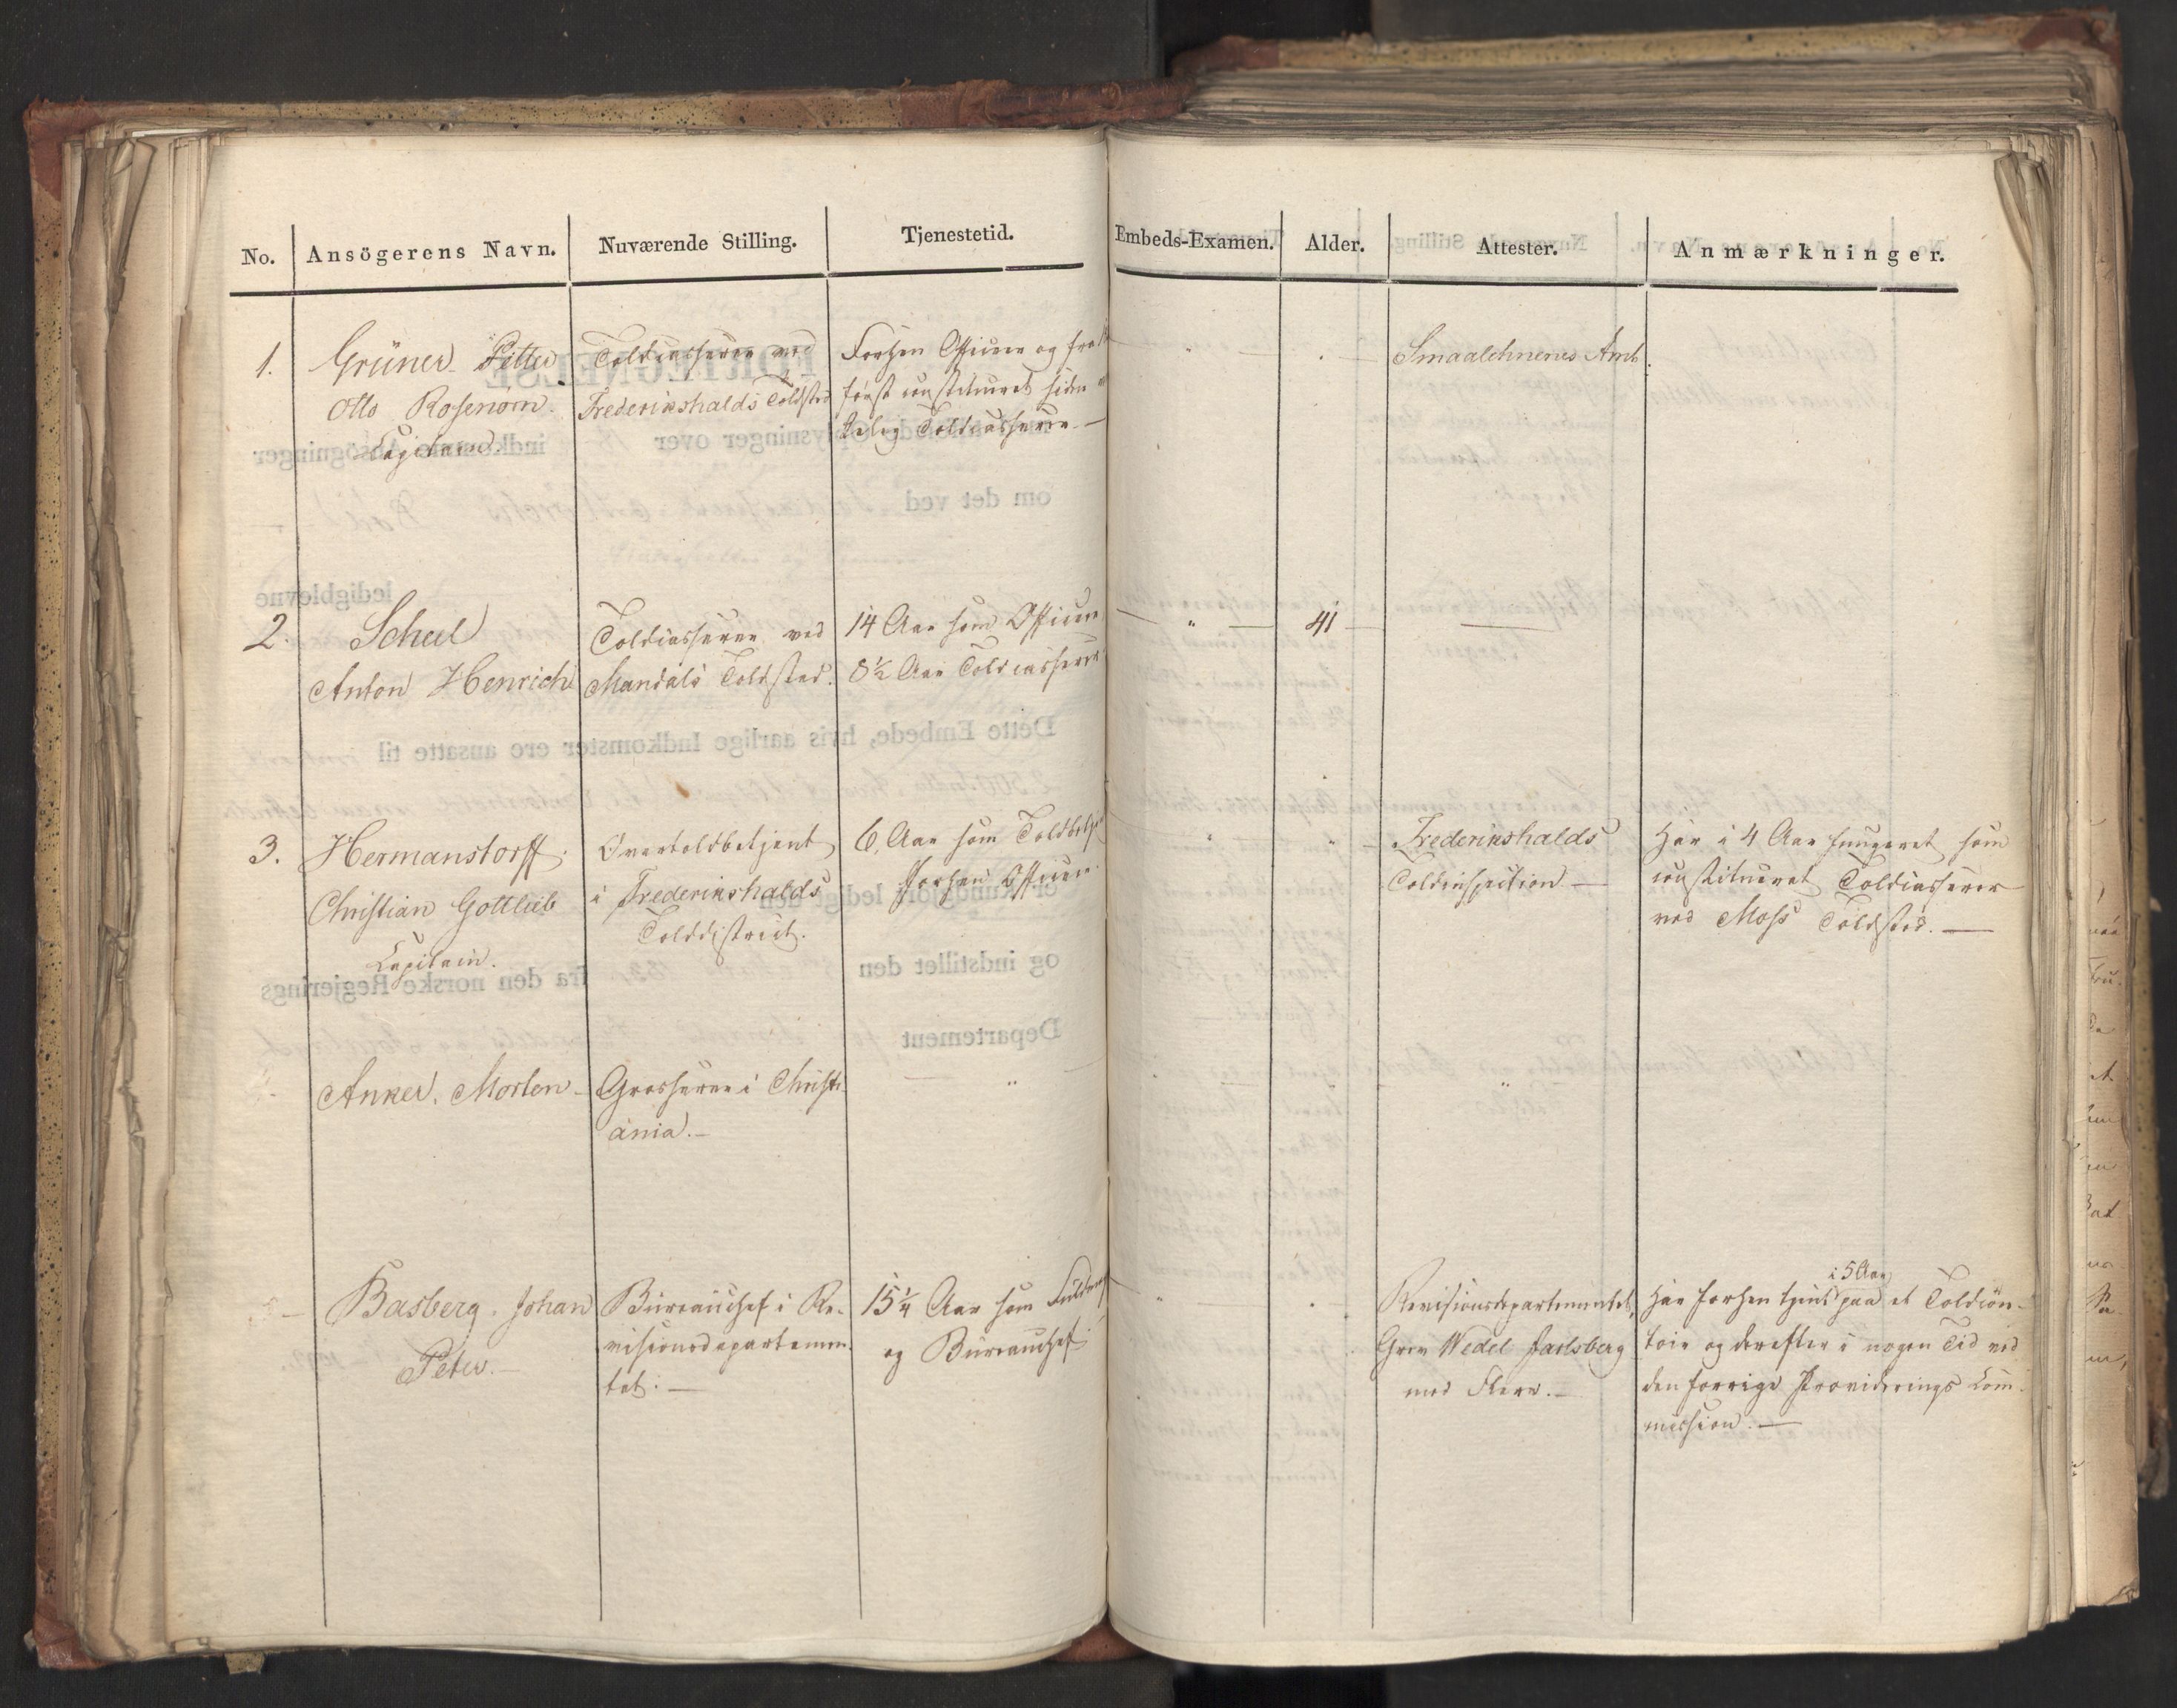 No. Ansögerens Navn. Nuværende Stilling. Tjenestetid. Embeds-Examen. Alder. Attester. Anmærkninger.
1. Grüner Petter
Otto Rosenørn.
Capitain.
Toldcasserer ved
Frederikshalds Toldsted
Forhen Officier og fra
først constitueret siden
Toldcasserer. —
Smaalehnenes Amt.
2. Scheel
Anton Henrich
Toldcasserer ved
Mandals Toldsted.
14 Aar som Officier
8½ Aar Toldcasserer
41
3. Hermanstorff.
Christian Gottlieb
Capitain.
Overtoldbetjent
i Frederikshalds
Tolddistrict.
6 Aar som
forhen Officier.
Frederikshalds
Toldinspection —
Har i 4 Aar fungeret som
constitueret Toldcasserer
ved Moss Toldsted. —
Anker, Morten —
Grosserer i Christi-
ania. —
Basberg, Johan
Peter. —
Bureauchef i Re-
visionsdepartemen-
tet. —
15¼ Aar som
og Bureauchef.
Revisionsdepartementet,
Grev Wedel Jarlsberg
med Flere. —
i 5 Aar
Har forhen tjent paa et Toldcon-
toir og derefter i nogen Tid ved
den forrige Providerings Com-
mission. —